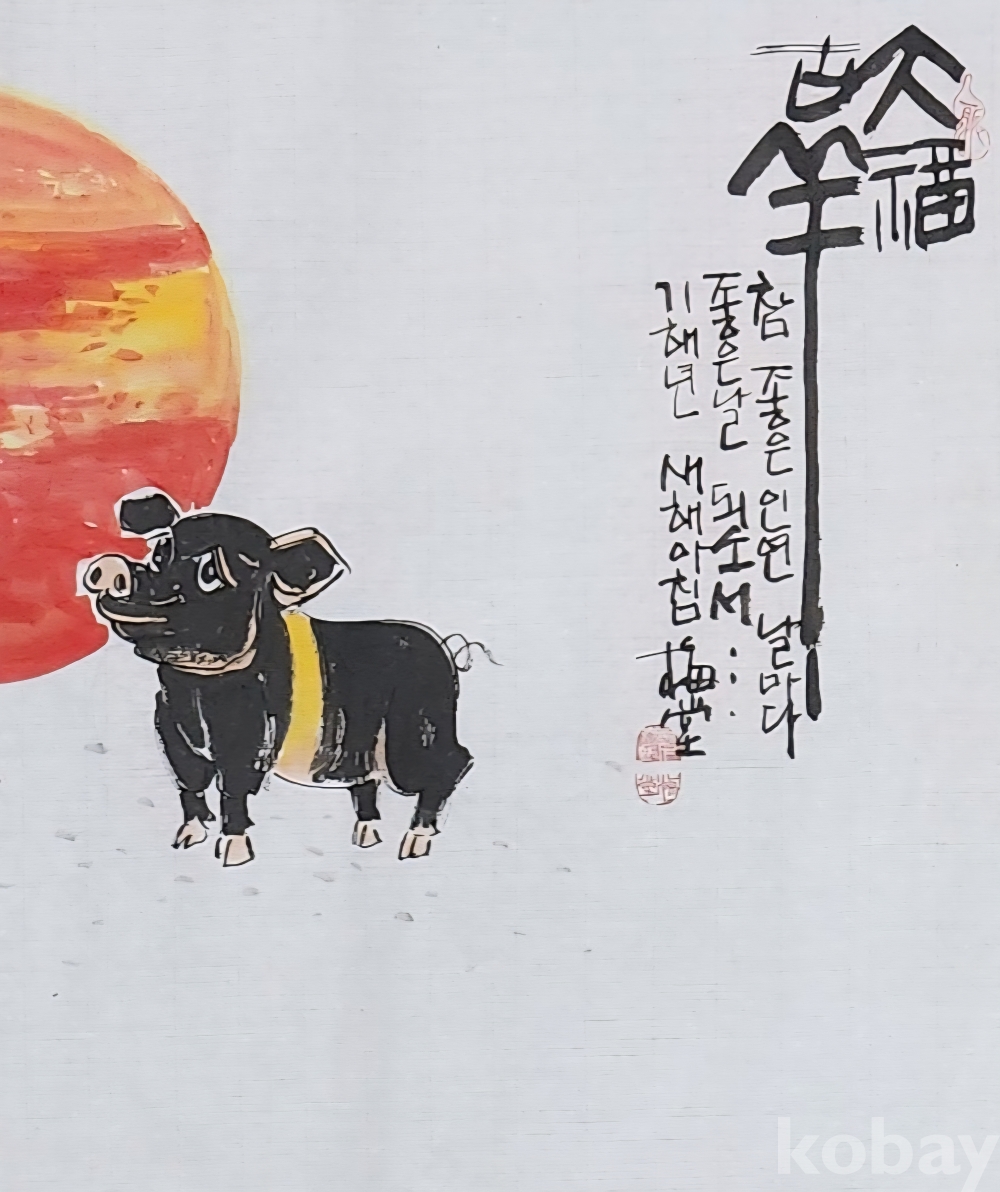 大福
吉羊
참 좋은 인연 날마다
좋은날 되소서...
기해년 새해아침 梅堂
kobay